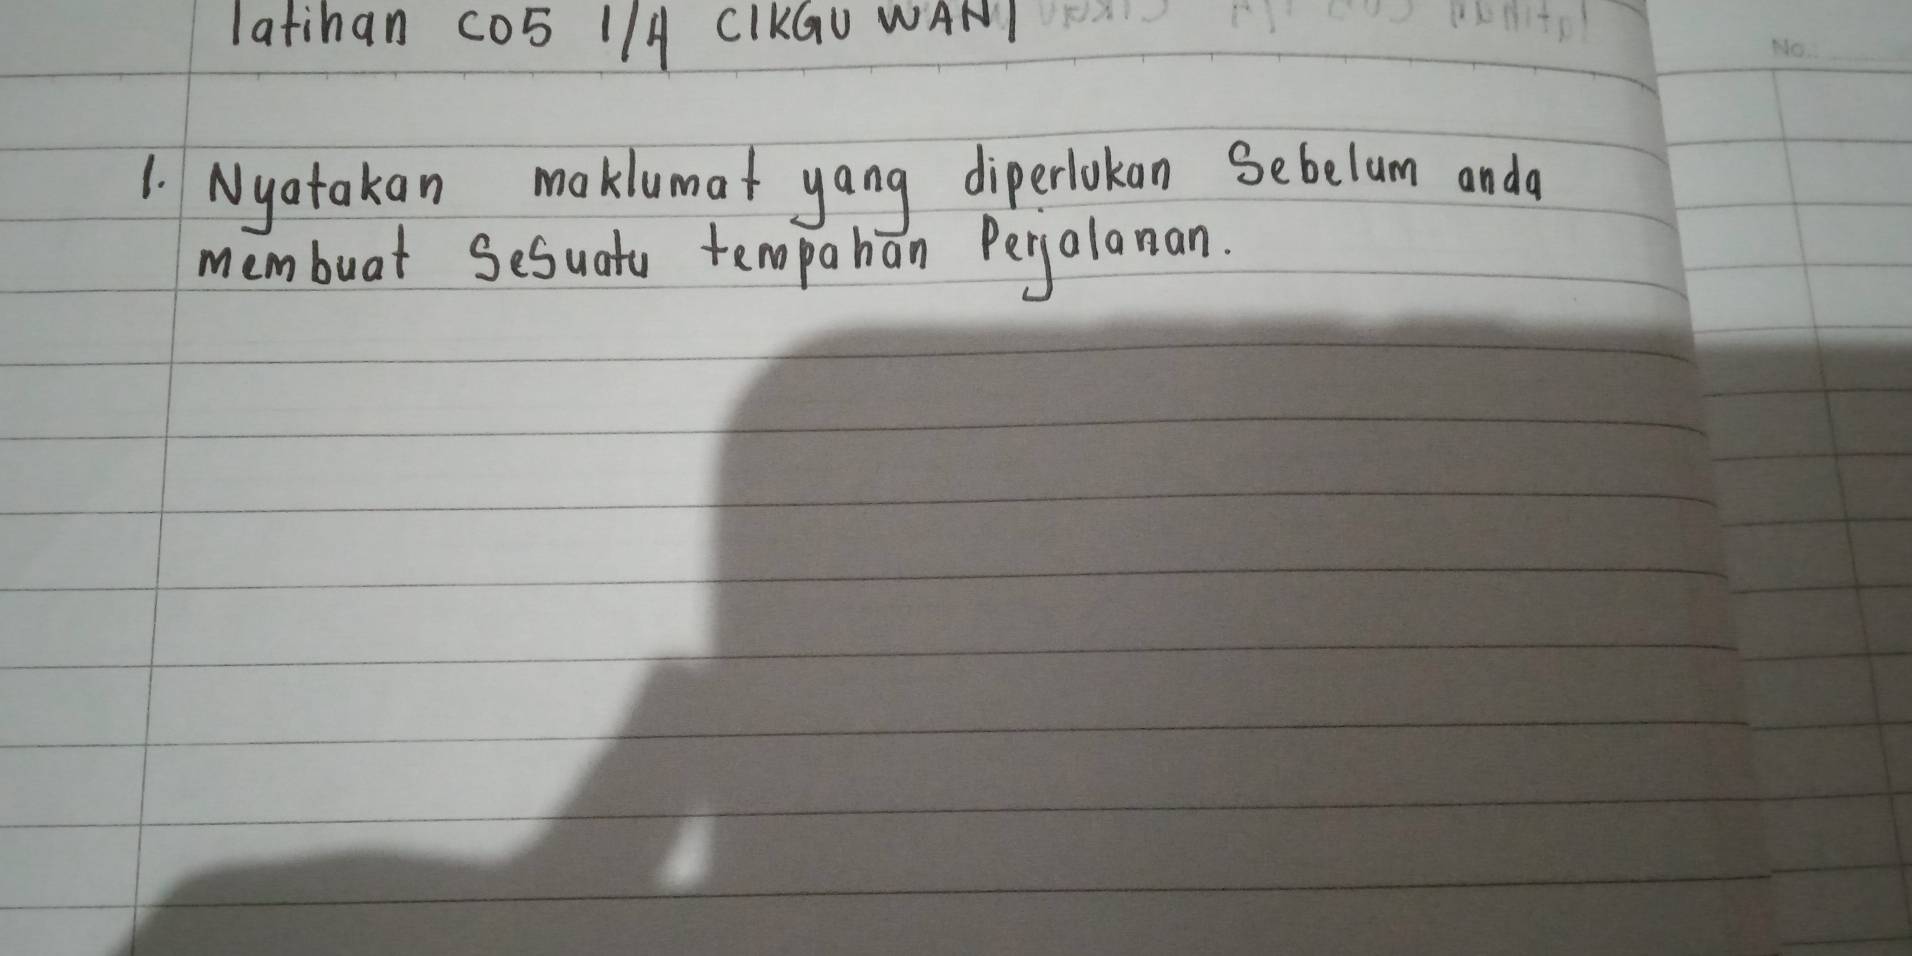 latihan CO5 1/4 CIKGU WANI
No.:
1. Nyatakan maklumat yang diperlukan Sebelum anda
membuat Sesuatu tempahan Perjalanan.